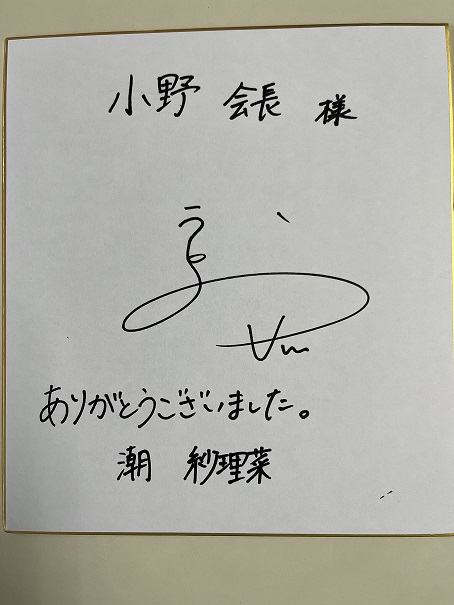 小野 会長 様
ありがとうございました。
潮 紗理菜